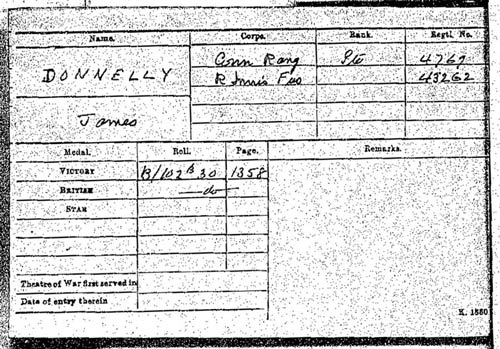 Name. Corps. Rank. Regtl. No.
DONNELLY Conn Rang Pte 4767
R Innis Fus 43262
James
Medal. Roll. Page. Remarks.
VICTORY B/102 B 30 1358
BRITISH —do—
STAR
Theatre of War first served in
Date of entry therein
K. 1380